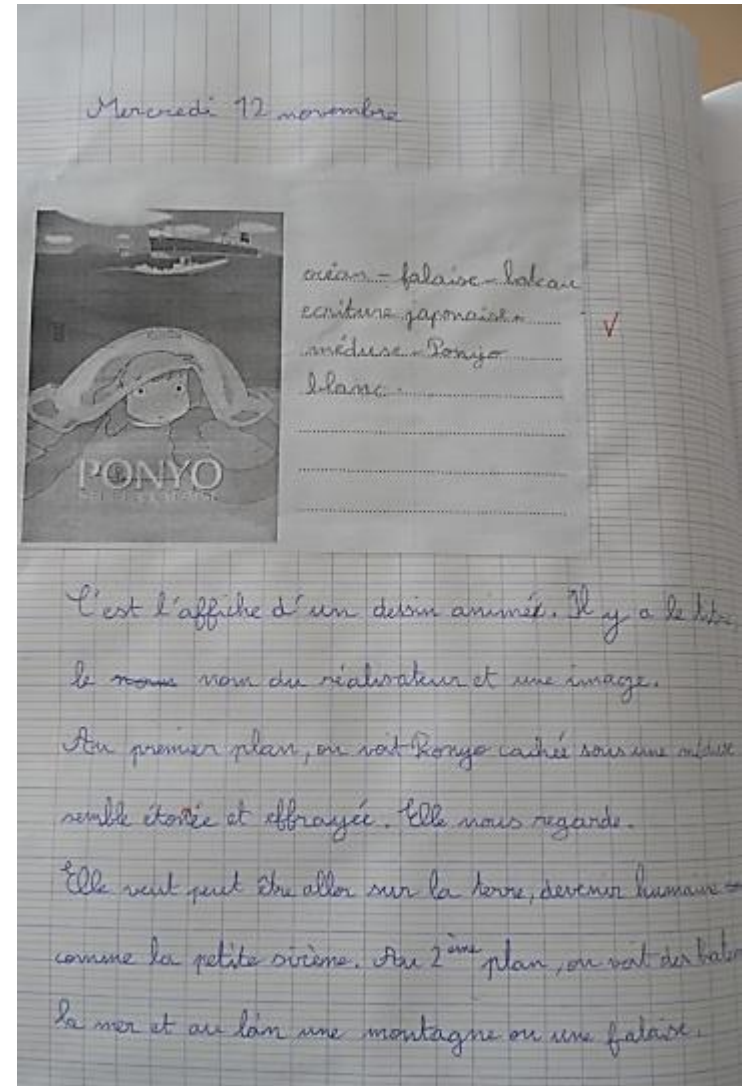 Mercredi 12 novembre
océan - falaise - bateau
ecriture japonaise -
méduse - Ponyo
blanc -
PONYO
C'est l'affiche d'un dessin animé. Il y a le titre,
le nom du réalisateur et une image.
Au premier plan, on voit Ponyo cachée sous une méduse
semble étonée et effrayée. Elle nous regarde.
Elle veut peut être aller sur la terre, devenir humaine
comme la petite sirène. Au 2ème plan, on voit des
la mer et au loin une montagne ou une falaise.